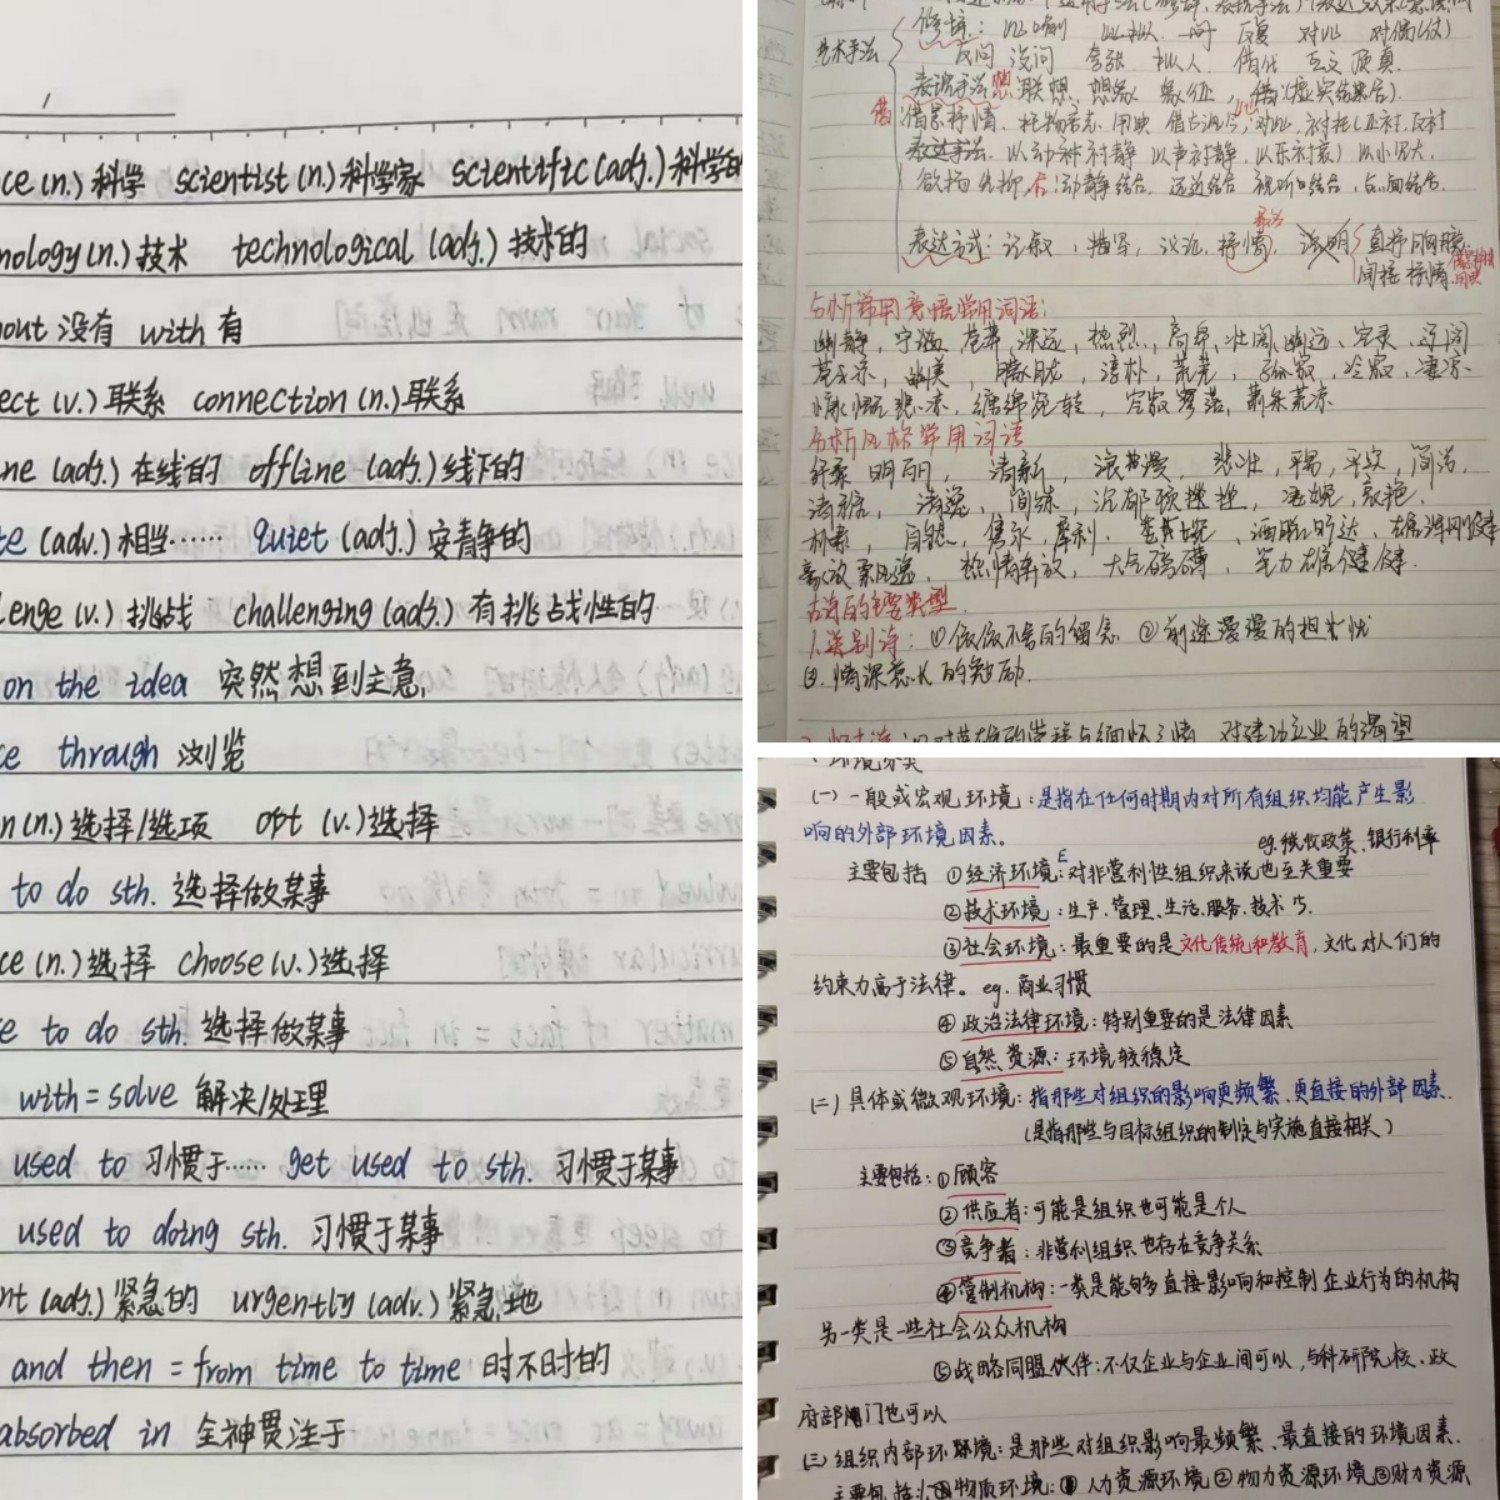 ce (n.) 科学 scientist (n.) 科学家 scientific (adj.) 科学的
nology (n.) 技术 technological (adj.) 技术的
out 没有 with 有
ect (v.) 联系 connection (n.) 联系
ne (adj.) 在线的 offline (adj.) 线下的
te (adv.) 相当…… quiet (adj.) 安静的
lenge (v.) 挑战 challenging (adj.) 有挑战性的
on the idea 突然想到主意
ce through 浏览
n (n.) 选择/选项 opt (v.) 选择
to do sth. 选择做某事
ce (n.) 选择 choose (v.) 选择
e to do sth. 选择做某事
with = solve 解决/处理
used to 习惯于…… get used to sth. 习惯于某事
used to doing sth. 习惯于某事
nt (adj.) 紧急的 urgently (adv.) 紧急地
and then = from time to time 时不时的
absorbed in 全神贯注于
艺术手法
修辞: 比喻 比拟 一问 反复 对比 对偶(仗)
反问 设问 夸张 拟人 借代 互文 顶真
表现手法 想: 联想、想象 象征
借: 借景抒情、托物言志、用典 借古讽今, 对比, 衬托(正衬,反衬
表达手法 以动衬静 以声衬静, 以乐衬哀) 以小见大,
欲扬先抑, 合: 动静结合 远近结合 视听结合, 点面结合.
表达方式: 记叙, 描写, 议论, 抒情, 说明 直抒胸臆
间接抒情
分析常用意境常用词语:
幽静, 宁谧, 苍莽, 深远, 热烈, 高昂, 壮阔, 幽远, 空灵, 辽阔
优美, 朦胧, 淳朴, 荒芜, 孤寂, 冷寂, 凄凉
慷慨悲凉, 缠绵宛转, 空寂寥落, 萧条荒凉
分析风格常用词语
明丽, 清新, 浪漫, 悲壮, 平易, 平实, 简洁,
清雅, 清逸, 简练, 沉郁顿挫, 凄婉,
朴素, 自然, 隽永, 犀利, 洒脱旷达, 雄浑刚健
豪放飘逸, 热情奔放, 大气磅礴, 笔力雄健
古诗的主要类型
1.送别诗: ①依依不舍的留念 ②前途漫漫的担忧
③.情深意长的勉励.
环境分类
(一) 一般或宏观环境: 是指在任何时期内对所有组织均能产生影
响的外部环境因素。 eg.税收政策、银行利率
主要包括 ①经济环境: 对非营利性组织来说也至关重要
②技术环境: 生产、管理、生活、服务、技术
③社会环境: 最重要的是文化传统和教育, 文化对人们的
约束力高于法律。eg. 商业习惯
④政治法律环境: 特别重要的是法律因素
⑤自然资源: 环境较稳定
(二) 具体或微观环境: 指那些对组织的影响更频繁、更直接的外部因素.
(是指那些与目标组织的制定与实施直接相关)
主要包括: ①顾客
②供应者: 可能是组织也可能是个人
③竞争者: 非营利组织也存在竞争关系
④管制机构: 一类是能够多直接影响和控制企业行为的机构
另一类是一些社会公众机构
⑤战略同盟伙伴: 不仅企业与企业间可以, 与科研院校、政
府部门也可以
(三) 组织内部环境: 是那些对组织影响最频繁、最直接的环境因素.
主要包括: 物质环境: ① 人力资源环境 ②物力资源环境 ③财力资源